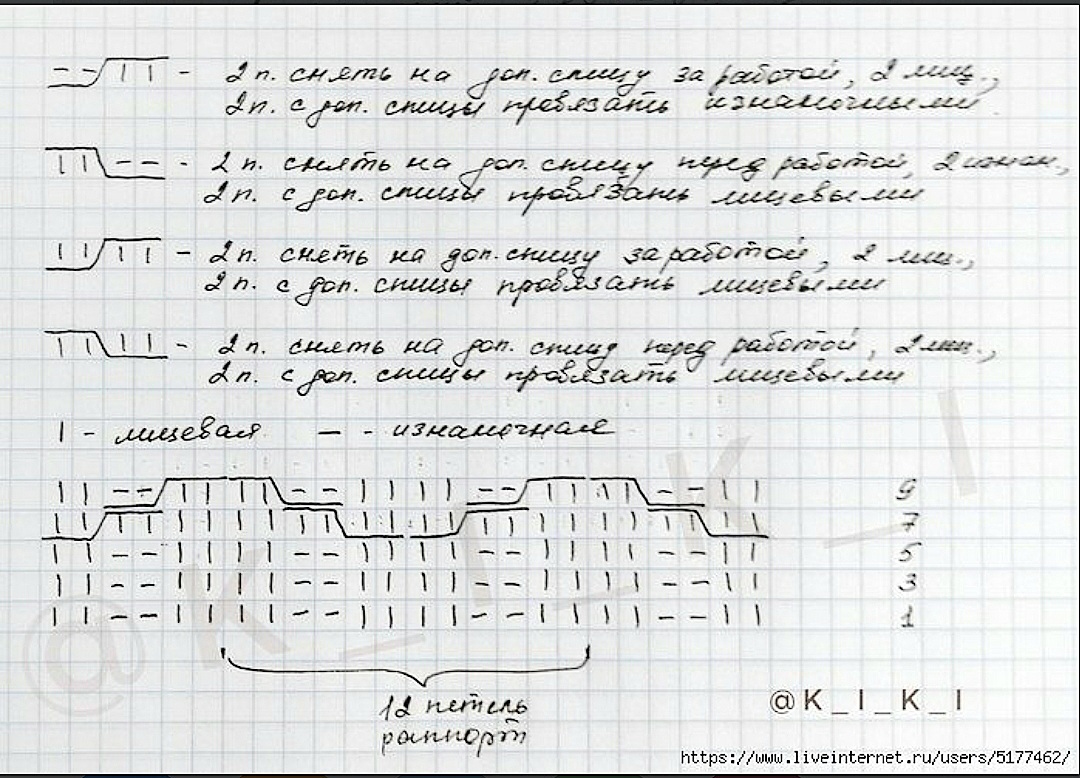 - - | | - 2 п. снять на доп. спицу за работой, 2 лиц.,
2 п. с доп. спицы провязать изнаночными
| | - - - 2 п. снять на доп. спицу перед работой, 2 изнан.,
2 п. с доп. спицы провязать лицевыми
| | | | - 2 п. снять на доп. спицу за работой, 2 лиц.,
2 п. с доп. спицы провязать лицевыми
| | | | - 2 п. снять на доп. спицу перед работой, 2 лиц.,
2 п. с доп. спицы провязать лицевыми
| - лицевая — - изнаночная
| | - - | | | | - - | | | | - - | | | | - - | | 9
| | | | | | | | | | | | | | | | | | | | | | | | 7
| | - - | | | | - - | | | | - - | | | | - - | | 5
| | - - | | | | - - | | | | - - | | | | - - | | 3
| | - - | | | | - - | | | | - - | | | | - - | | 1
12 петель
раппорт
@K_I_K_I
@K_I_K_I
https://www.liveinternet.ru/users/5177462/